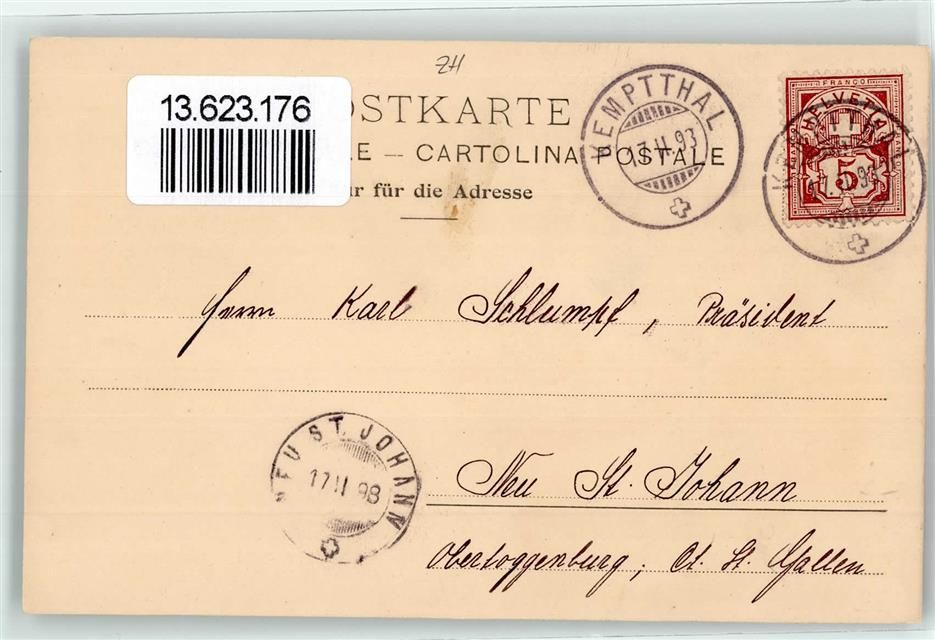 ZH
13.623.176
OSTKARTE
LE — CARTOLINA POSTALE
ur für die Adresse
KEMPTTHAL
FRANCO
HELVETIA
5
Herrn Karl Schlumpf, Präsident
NEU ST. JOHANN
17 II 98
Neu St. Johann
Obertoggenburg, Ct. St. Gallen